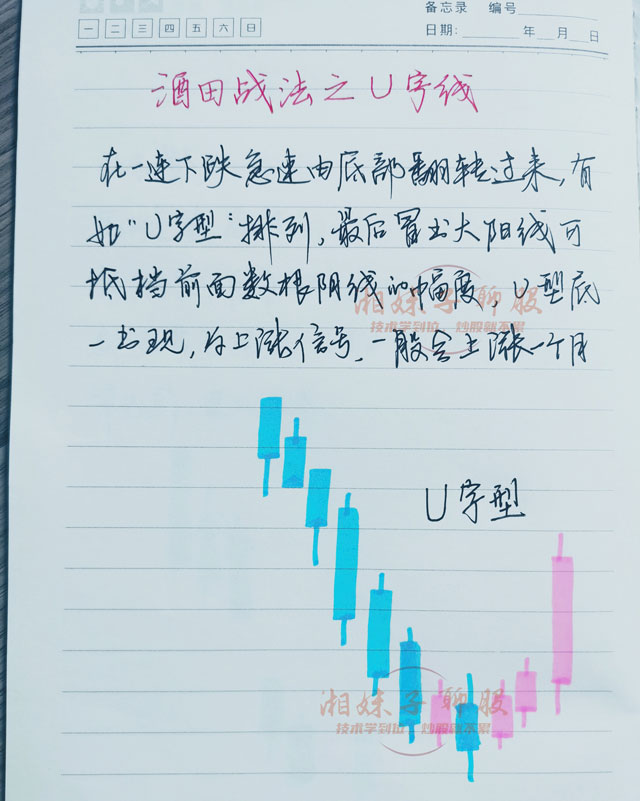 备忘录 编号
一 二 三 四 五 六 日 日期: 年 月 日
酒田战法之U字线
在一连下跌急速由底部翻转过来,有
如“U字型”排列,最后冒出大阳线可
抵档前面数根阴线的幅度,U型底
一出现,为上涨信号,一般会上涨一个月
湘妹子聊股
技术学到位 炒股就不累
U字型
湘妹子聊股
技术学到位 炒股就不累